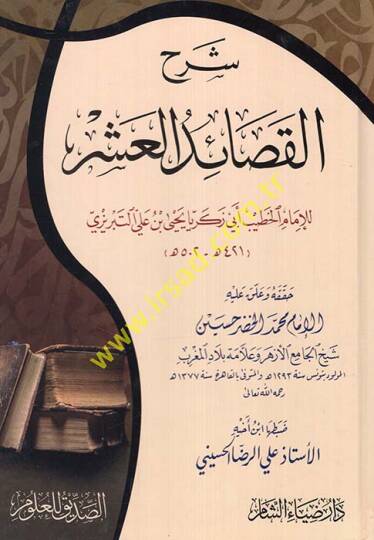 شرح
القصائد العشر
للإمام الخطيب أبي زكريا يحيى بن علي التبريزي
(٤٢١هـ - ٥٠٢هـ)
حققه وعلق عليه
الإمام محمد الخضر حسين
شيخ الجامع الأزهر وعلامة بلاد المغرب
المولود بتونس سنة ١٢٩٣هـ والمتوفى بالقاهرة سنة ١٣٧٧هـ
رحمه الله تعالى
ضبطها ابن أخيه
الأستاذ علي الرضا الحسيني
دار ضياء الشام
الصديق للعلوم
www.irsad.com.tr